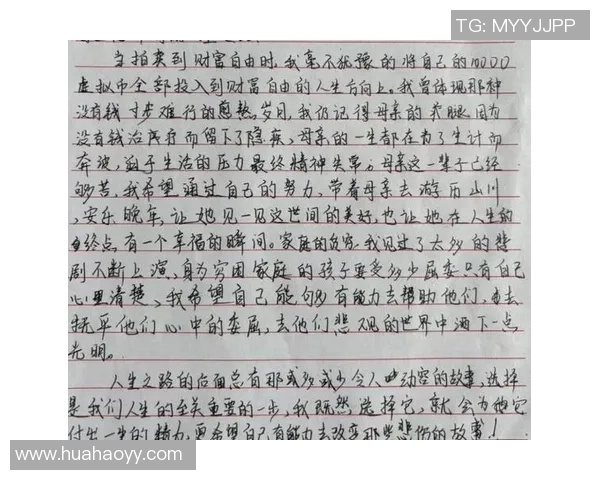 TG: MYYJJPP
当拍卖到财富自由时,我毫不犹豫的将自己的10000
虚拟币全部投入到财富自由的人生方向上。我曾体现那种
没有钱寸步难行的 岁月,我仍记得母亲的 腿因为
没有钱治疗而留下了隐疾,母亲的一生都在为了生计而
奔波,迫于生活的压力最终精神失常。母亲这一辈子已经
够苦,我希望通过自己的努力,带着母亲去游历山川
,安乐晚年,让她见一见这世间的美好,也让她在人生的
终点有一个幸福的瞬间。家庭的贫穷,我见过了太多的悲
剧不断上演,身为穷困家庭的孩子要受多少屈委只有自己
心里清楚,我希望自己能够有能力去帮助他们,去
抚平他们心中的委屈,去他们悲观的世界中洒下一点
光明。
人生之路的后面总有那或多或少令人动容的故事,选择
是我们人生的至关重要的一步,我既然选择它,就会为他
付出一生的精力,更希望自己有能力去改变那些悲伤的故事!
www.huahaoyy.com